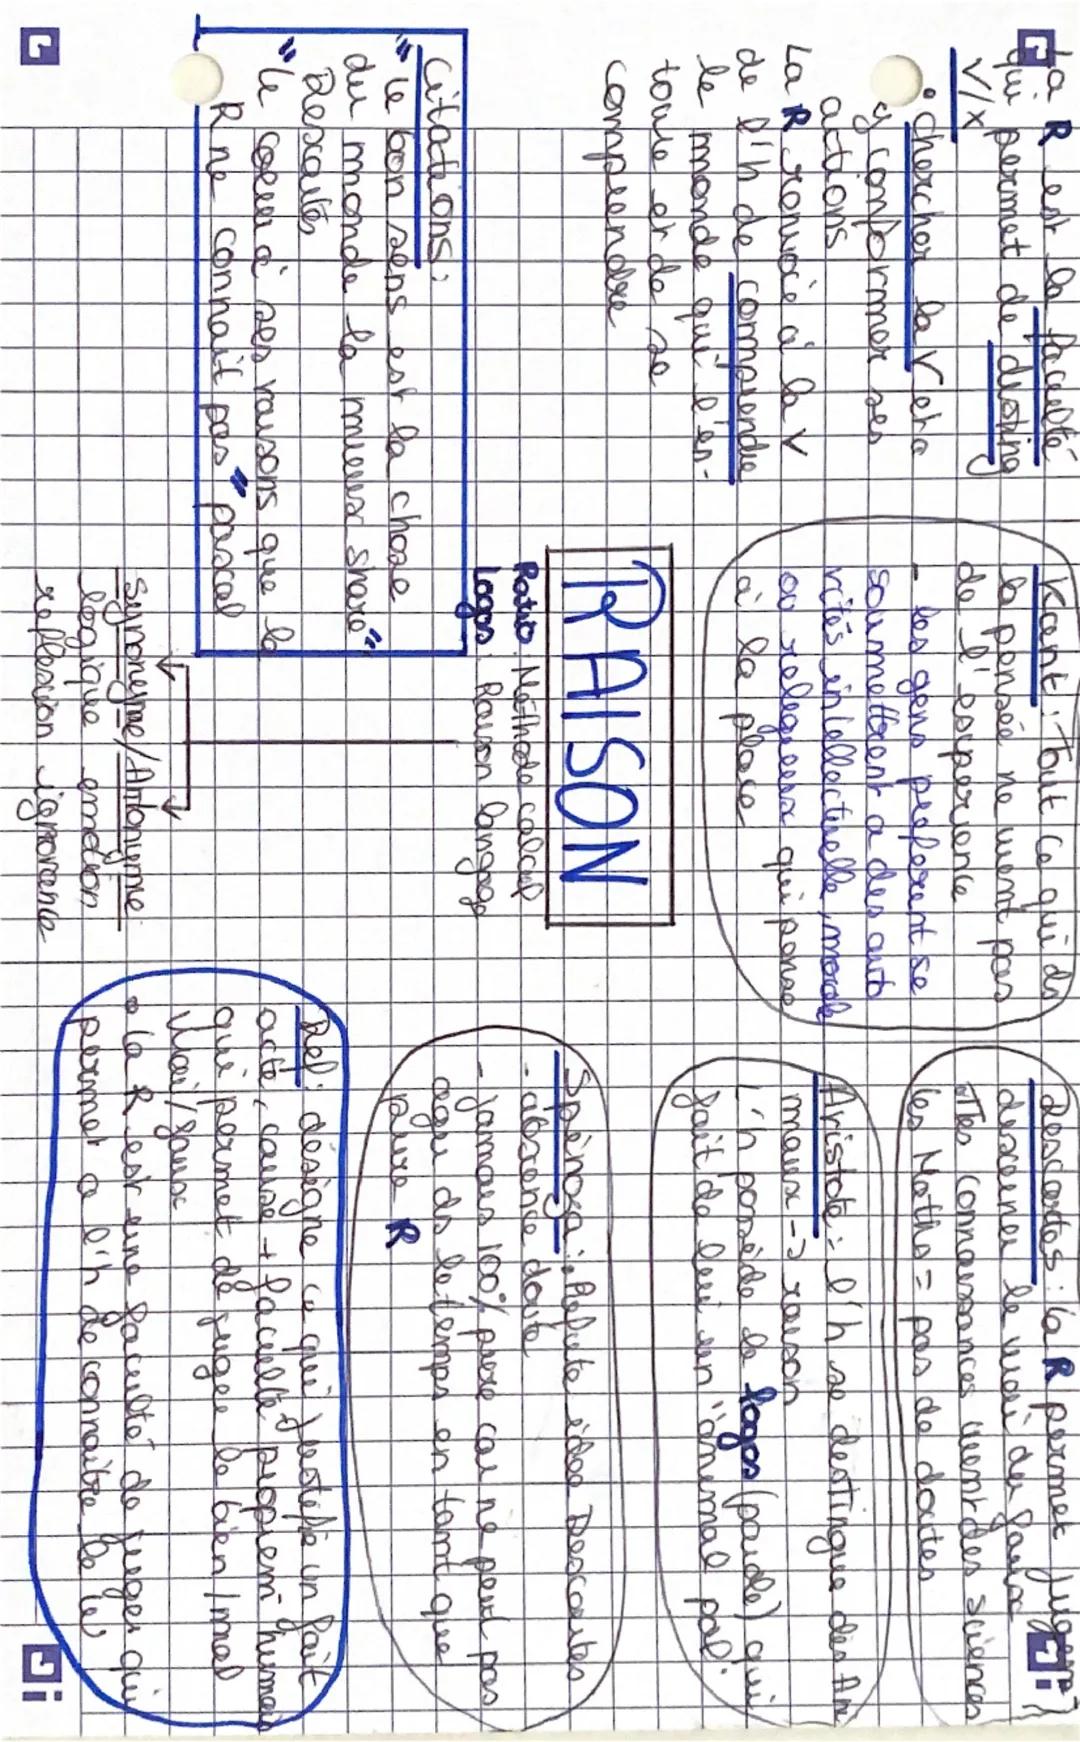 La R est la faculté
qui permet de disting
V/X
• chercher la V etre
y conformer ses
actions
La R renvoie à la V
de l'h de comprendre
le monde qui l'en-
toure et de se
comprendre
Citations:
"le bon sens est la chose
du monde la mieux share"
Descartes
"le coeur à ses raisons que la
R ne connaît pas" pascal
Kant: Tout ce qui ds
la pensée ne vient pas
de l'esperience
- les gens preferent se
soumettrent a des auto
rités intellectuelle, morale
ou religieux qui pense
à la place
RAISON
Ratio: Méthode calcul
Logos: Raison langage
Synonyme/Antonyme
logique emotion
reflexion ignorance
Descartes: la R permet jugem
discerner le vrai du faux
Les connaissances vient des sciences
les Maths = pas de doutes
Aristote: l'h se distingue des An
maux -> raison
L'h possède le logos (parole) qui
fait de lui un "animal pol.
Spinoza: Refute idée Descartes
- absence doute
- jamais 100% pure car ne peut pas
agir ds le temps en tant que
pure R
Def: désigne ce qui justifie un fait
acte, cause + faculté propremt humai
qui permet de juger le bien/mal
Vrai/faux
• la R est une faculté de juger qui
permet a l'h de connaître le